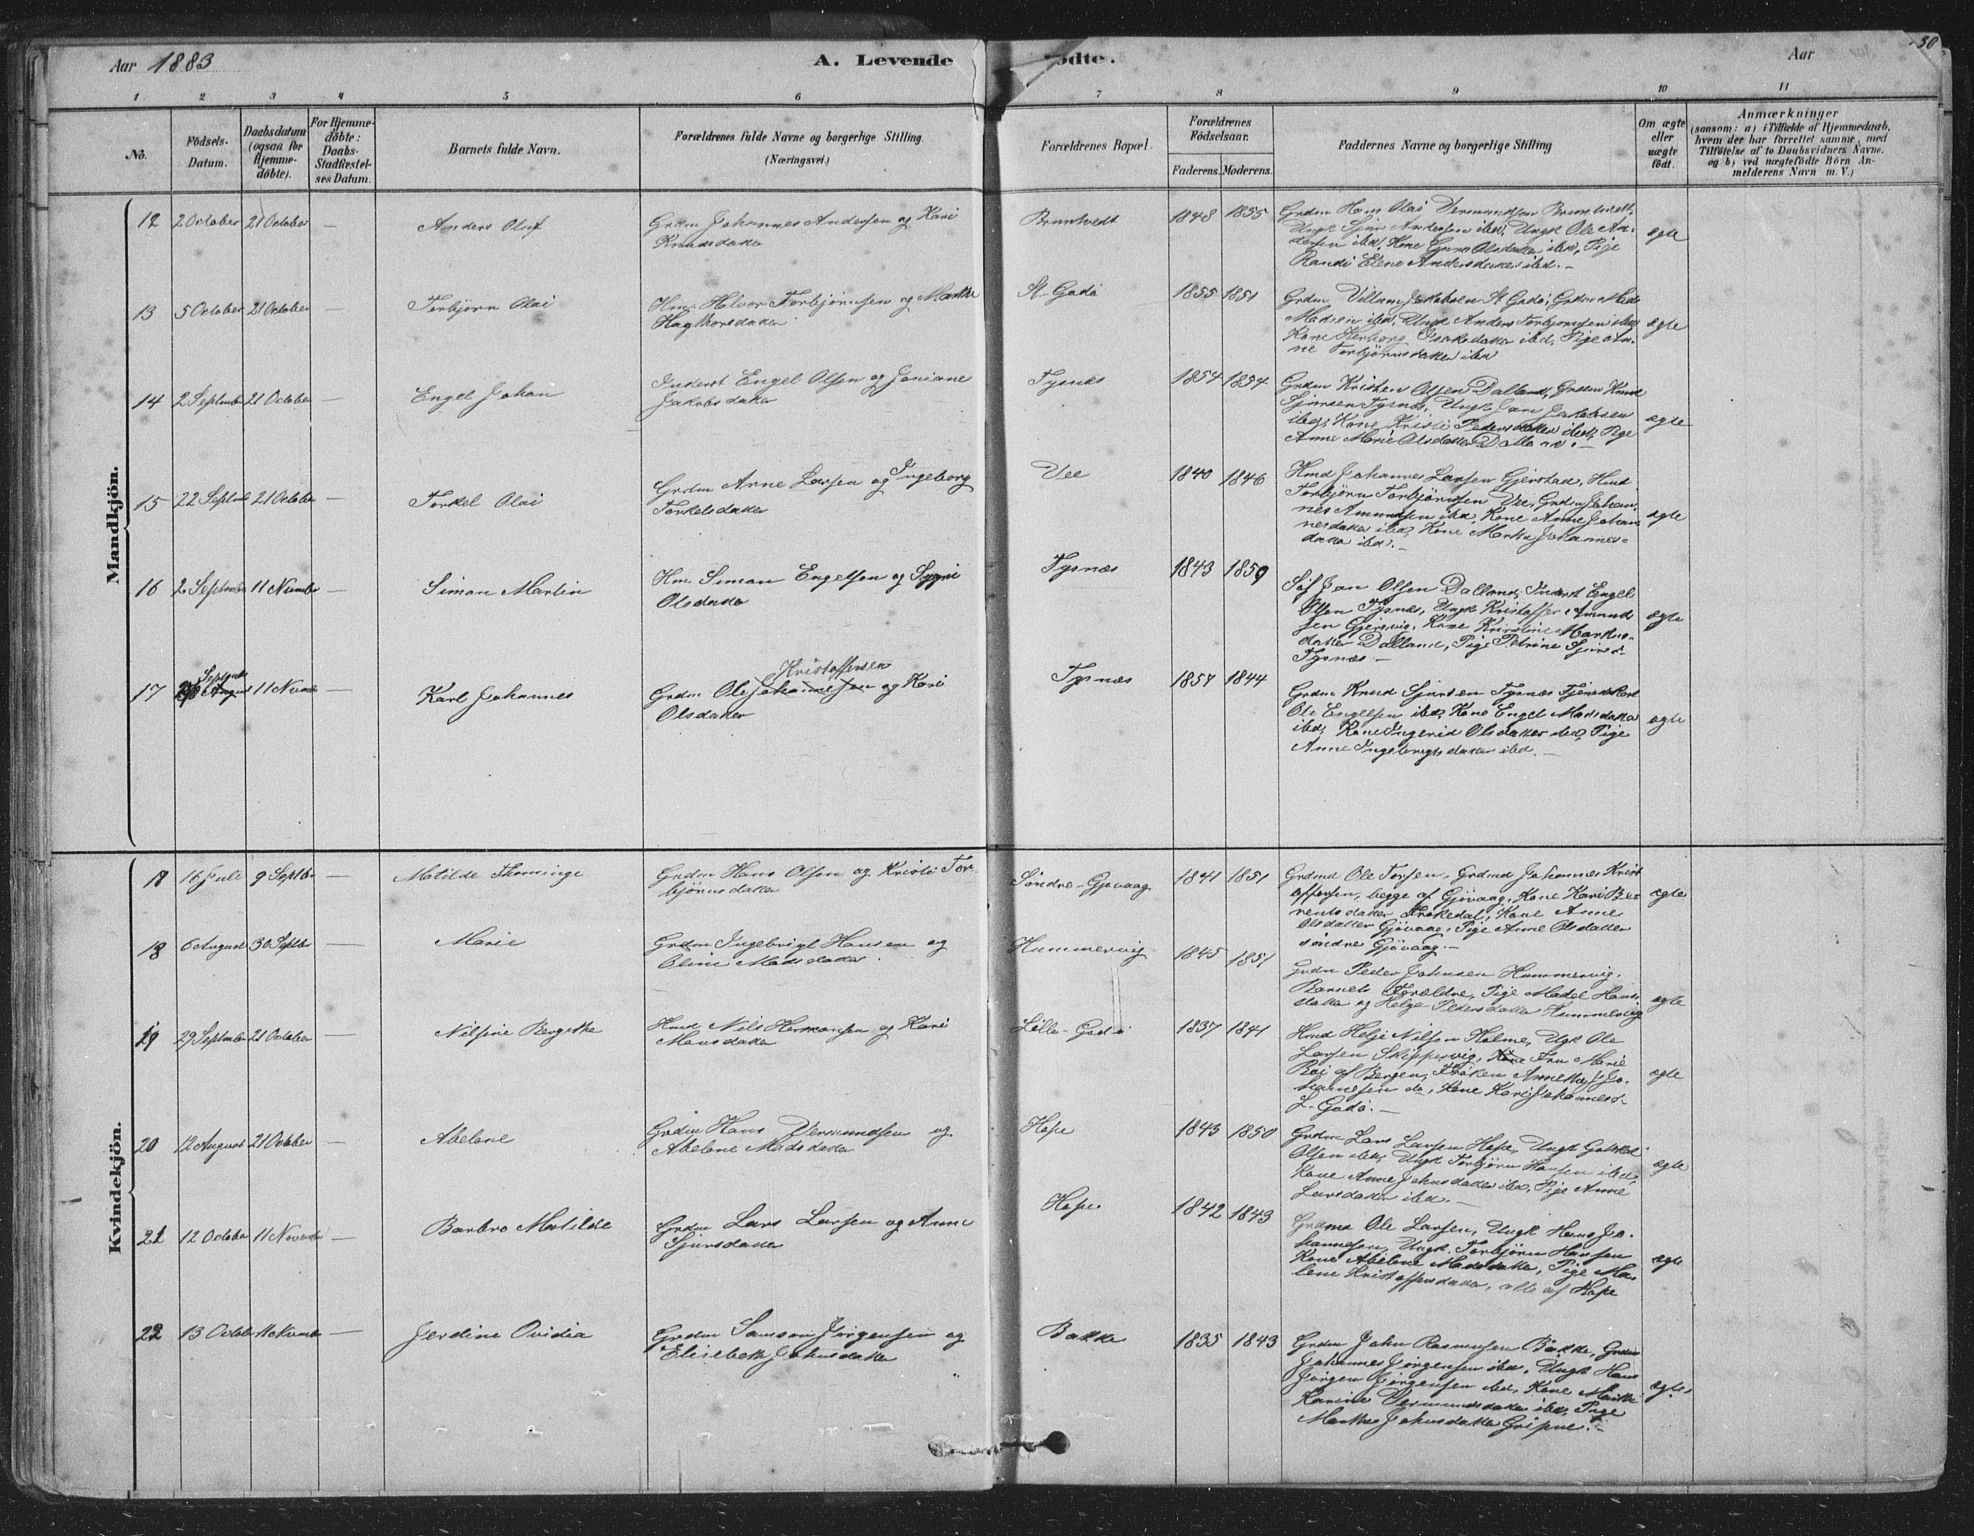 Aar 1883
A. Levende fødte.
Aar
30
1 2 3 4 5 6 7 8 9 10 11
No.
Födsels-Datum.
Daabsdatum (ogsaa for Hjemmedöbte).
For Hjemmedöbte: Daabs-Stadfestelses Datum.
Barnets fulde Navn.
Forældrenes fulde Navne og borgerlige Stilling. (Næringsvei.)
Forældrenes Bopæl.
Forældrenes Födselsaar.
Faderens. Moderens.
Faddernes Navne og borgerlige Stilling
Om ægte eller uægte födt.
Anmærkninger
(saasom: a) i Tilfælde af Hjemmedaab,
hvem der har forrettet samme, med
Tilföielse af to Daabsvidners Navne.
og b) ved uægtefödte Börn An-
melderens Navn m. V.)
Mandkjön.
12 2 October 21 October — Anders Oluf
Grdm Johannes Andersen og Kari
Knudsdatter
Bruntvedt 1848 1855
Grdm Hans Olai Vermundsen Bruntvedt,
Ungk Sjur Andersen ibid, Ungk Ole An-
dersen ibid, Kone Guro Olsdatter ibid, Pige
Randi Elene Andersdatter ibid. —
ægte
13 5 October 21 October — Torbjörn Olai
Hm. Halvor Torbjörnsen og Martha
Hagthorsdatter
St. Godö 1855 1851
Grdm Villum Jakobsen St. Godö, Grdm Mads
Madsen ibid, Ungk Anders Torbjörnsen ibid,
Kone Herborg Isaksdatter ibid, Pige An-
ne Torbjörnsdatter ibid
ægte
14 2 Septmber 21 October — Engel Johan
Inderst Engel Olsen og Joniane
Jakobsdatter
Tysnæs 1854 1854
Grdm Kristen Olsen Dalland, Grdm Knud
Sjursen Tysnæs, Ungk Jan Jakobsen
ibid, Kone Kristi Pedersdatter ibid, Pige
Anne Marie Olsdatter Dalland. —
ægte
15 22 Septmb 21 October — Torkel Olai
Grdm Arne Larsen og Ingeborg
Torkelsdatter
Vee 1840 1846
Hmd Johannes Larsen Gjerstad, Hmd
Torbjörn Torbjörnsen Vee, Grdm Johan-
nes Amundsen ibid, Kone Anne Johan-
nesdatter ibid, Kone Martha Johannes-
datter ibid. —
ægte
16 2 Septmber 11 November — Simon Martin
Hm. Simon Engelsen og Sygni
Olsdatter
Tysnæs 1843 1850
Söf Jan Olsen Dalland, Inderst Engel
Olsen Tysnæs, Ungk Kristoffer Amund
sen Gjersvig, Kone Kristine Markus-
datter Dalland, Pige Petrine Sjurs-
Tysnæs —
ægte
17 Septmb August 11 November — Karl Johannes
Kristoffersen
Grdm Ole Johannesen og Kari
Olsdatter
Tysnæs 1857 1844
Grdm Knud Sjursen Tysnæs, Tjenestekarl
Ole Engelsen ibid, Kone Engel Marsdatter
ibid, Kone Ingerid Olsdatter ibid, Pige
Anne Ingebrigtsdatter ibid. —
ægte
Kvindekjön.
17 16 Juli 9 Septbr — Matilde Thominge
Grdm Hans Olsen og Kristi Tor-
björnsdatter
Söndre-Gjövaag 1841 1851
Grdmd Ole Torsen, Grdmd Johannes Krist
offersen, begge af Gjövaag, Kone Kari Be-
rentsdatter Frökedal, Kone Anne
Olsdatter Gjövaag, Pige Anne Olsdatter
söndre Gjövaag. —
ægte
18 6 August 30 Septbr — Marie
Grdm Ingebrigt Hansen og
Oline Madsdatter.
Hummervig 1845 1851
Grdm Peder Johnsen Hummervig,
Barnets Forældre, Pige Madel Hans-
datter og Helga Pedersdatter Hummervig
ægte
19 29 September 21 October — Nilsine Bergitte
Hmd Nils Hermansen og Kari
Monsdatter
Lille-Godö 1837 1841
Hmd Helje Nilsen Holme, Ugk Ole
Larsen Skippervig, Kone Fru Marie
Boi af Bergen, Fröken Annette Jo-
hannesen do, Kone Kari Johannesd
L-Godö. —
ægte
20 12 August 21 October — Abelone
Grdm Hans Vermundsen og
Abelone Madsdatter
Hope 1843 1850
Grdm Lars Larsen Hope, Ungk Gotskal
Olsen ibid, Ungk Torbjörn Hansen ibid,
Kone Anne Johnsdatter ibid, Pige Anne
Larsdatter ibid. —
ægte
21 12 October 11 November — Barbro Matilde
Grdm Lars Larsen og Anne
Sjursdatter
Hope 1842 1843
Grdmd Ole Larsen, Ungk Hans Jo-
hannesen, Ungk Torbjörn Hansen
Kone Abelone Madsdatter, Pige Ma-
lene Kristoffersdatter, alle af Hope
ægte
22 13 October 11 November — Jerdine Ovidia
Grdm Samson Jörgensen og
Elisebeth Johnsdatter
Bakke 1835 1843
Grdm John Rasmussen Bakke, Grdm
Johannes Jörgensen ibid, Ungk Hans
Jörgen Jörgensen ibid, Kone Marthe
Karine Vermundsdatter ibid, Pige
Marthe Johnsdatter Gripne. —
ægte